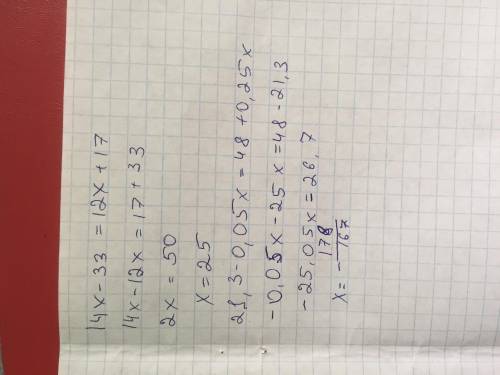 14x-33 = 12x+17
14x-12x = 17+33
2x = 50
x = 25
21,3-0,05x = 48+0,25x
-0,05x-25x = 48-21,3
-25,05x = 26,7
x = - 178/167